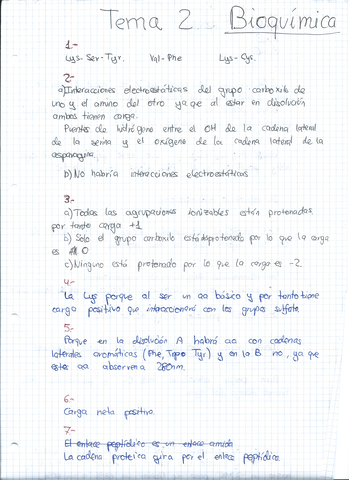 Tema 2 Bioquímica
1.-
Lys-Ser-Tyr. Val-Phe Lys-Cys.
2-
a) Interacciones electroestáticas del grupo carboxilo de
uno y el amino del otro ya que al estar en disolución
ambas tienen carga.
Puentes de hidrógeno entre el OH de la cadena lateral
de la serina y el oxígeno de la cadena lateral de la
asparagina.
b) No habría interacciones electroestáticas
3-
a) Todas las agrupaciones ionizables están protonadas,
por tanto carga +1
b) Solo el grupo carboxilo está desprotonado por lo que la carga
es 0
c) Ninguno está protonado por lo que la carga es -2
4-
La Lys porque al ser un aa básico y por tanto tiene
carga positiva que interaccionará con los grupos sulfato
5-
Porque en la disolución A habrá aa con cadenas
laterales aromáticas (Phe, Trp o Tyr) y en la B no, ya que
estos aa absorven a 280nm.
6.-
Carga neta positiva.
7-
El enlace peptídico es un enlace amida
La cadena proteica gira por el enlace peptídico.